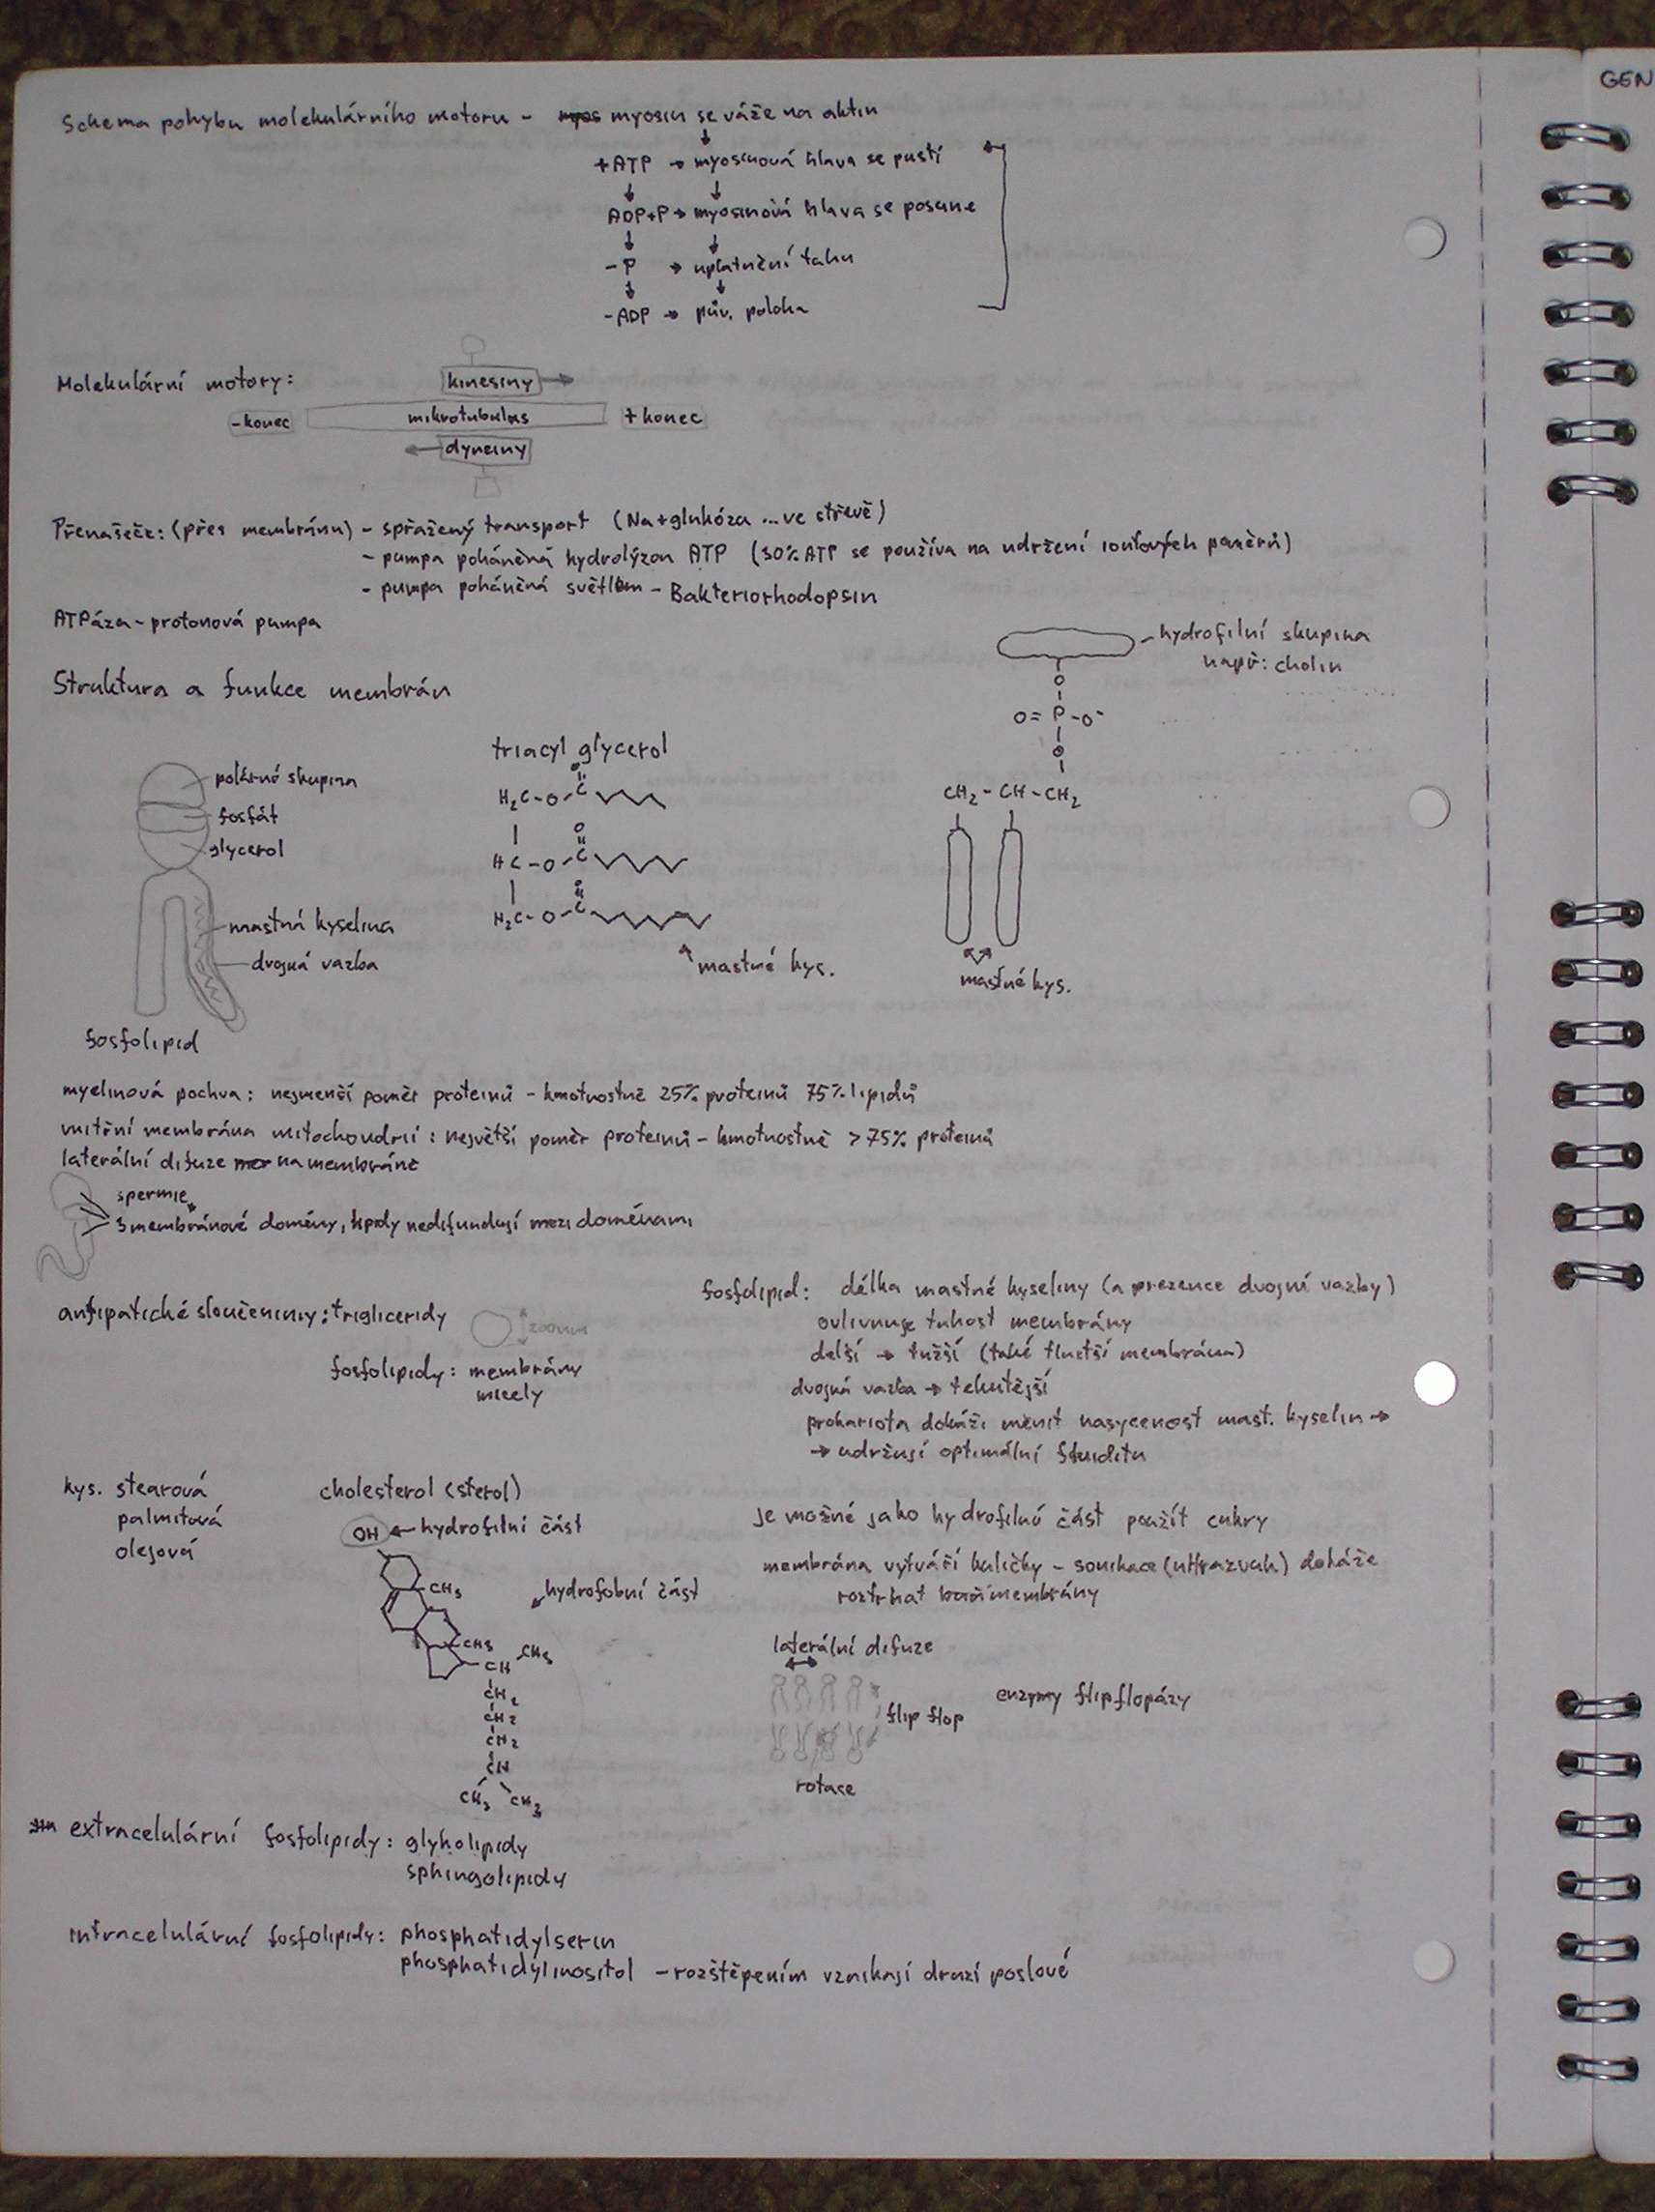 GEN
Schema pohybu molekulárního motoru - myosin se váže na aktin
+ATP → myosinová hlava se pustí
ADP+P → myosinová hlava se posune
-P → uplatnění tahu
-ADP → pův. poloha
Molekulární motory:
kinesiny →
-konec mikrotubulus +konec
← dyneiny
Přenašeče: (přes membránu) - spřažený transport (Na+glukóza ...ve střevě)
- pumpa poháněná hydrolýzou ATP (30% ATP se používa na udržení iontových poměrů)
- pumpa poháněná světlem - Bakteriorhodopsin
ATPáza - protonová pumpa
Struktura a funkce membrán
polární skupina
fosfát
glycerol
mastná kyselina
dvojná vazba
fosfolipid
triacyl glycerol
O
H2C-O-C
O
HC-O-C
O
H2C-O-C
mastné kys.
hydrofilní skupina
např: cholin
O
O=P-O-
O
CH2-CH-CH2
mastné kys.
myelinová pochva: nejmenší poměr proteinů - hmotnostně 25% proteinů 75% lipidů
vnitřní membrána mitochondrií: největší poměr proteinů - hmotnostně >75% proteinů
laterální difuze na membráně
spermie
3 membránové domény, lipidy nedifundují mezi doménami
antipatické sloučeniny: trigliceridy
200nm
fosfolipidy: membrány
micely
fosfolipid: délka mastné kyseliny (a prezence dvojní vazby)
ovlivnuje tuhost membrány
delší → tužší (také tlustší membrána)
dvojná vazba → tekutější
prokariota dokáží měnit nasycenost mast. kyselin →
→ udržují optimální fluiditu
kys. stearová
palmitová
olejová
cholesterol (sterol)
OH ← hydrofilní část
CH3
hydrofobní část
CH3
CH3
CH
CH2
CH2
CH2
CH
CH3 CH3
je možné jako hydrofilní část použít cukry
membrána vytváří kuličky - sonikace (ultrazvuk) dokáže
roztrhat membrány
laterální difuze
flip flop
rotace
enzymy flipflopázy
extracelulární fosfolipidy: glykolipidy
sphingolipidy
intracelulární fosfolipidy: phosphatidylserin
phosphatidylinositol - rozštěpením vznikají druzí poslové